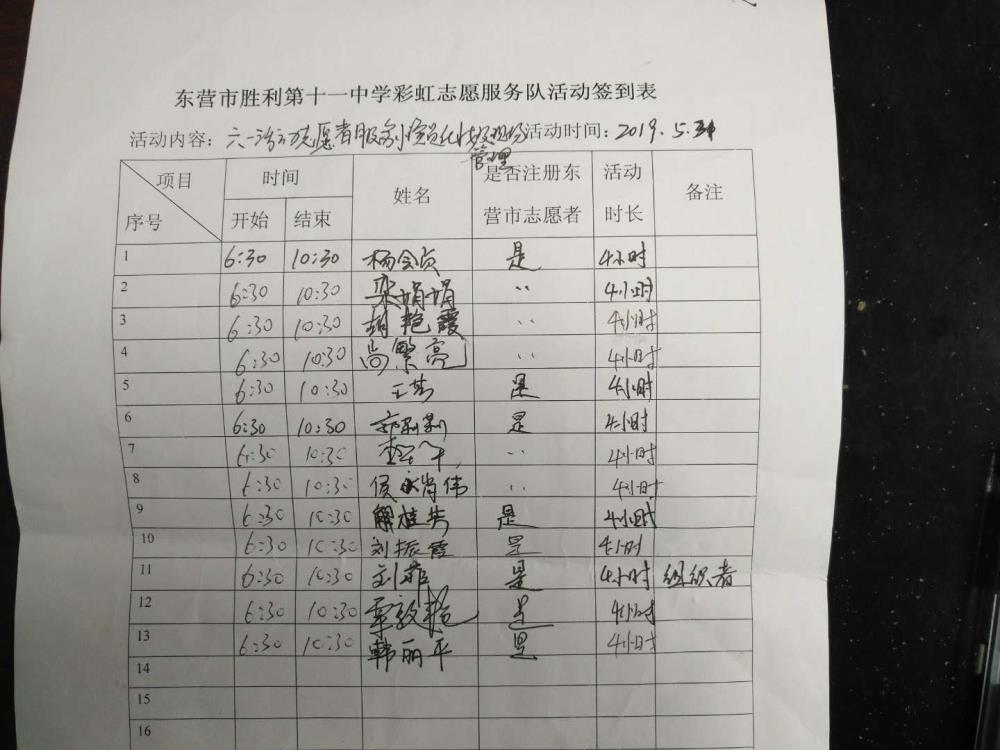 东营市胜利第十一中学彩虹志愿服务队活动签到表
活动内容：六一活动志愿者服务 演员化妆及现场 活动时间：2019.5.31
管理
项目 时间 姓名 是否注册东 活动 备注
序号 开始 结束 营市志愿者 时长
1 6:30 10:30 杨会贞 是 4小时
2 6:30 10:30 栾娟娟 〃 4小时
3 6:30 10:30 胡艳霞 〃 4小时
4 6:30 10:30 尚繁亮 〃 4小时
5 6:30 10:30 王 是 4小时
6 6:30 10:30 是 4小时
7 6:30 10:30 〃 4小时
8 6:30 10:30 侯 伟 〃 4小时
9 6:30 10:30 解桂芳 是 4小时
10 6:30 10:30 刘振霞 是 4小时
11 6:30 10:30 刘菲 是 4小时 组织者
12 6:30 10:30 艳 是 4小时
13 6:30 10:30 韩丽平 是 4小时
14
15
16